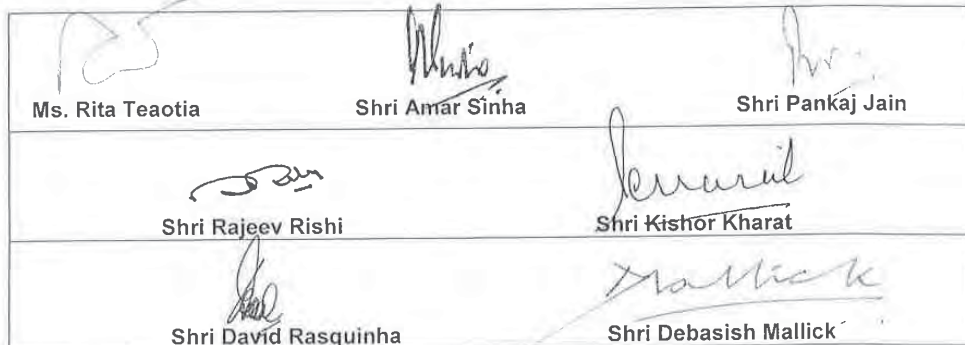 Ms. Rita Teaotia Shri Amar Sinha Shri Pankaj Jain
Shri Rajeev Rishi Shri Kishor Kharat
Mallick
Shri David Rasquinha Shri Debasish Mallick